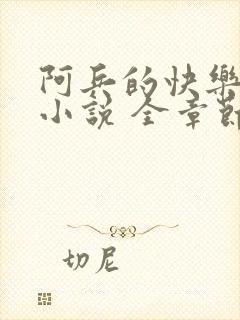 阿兵的快樂
小說 全章節
切尼